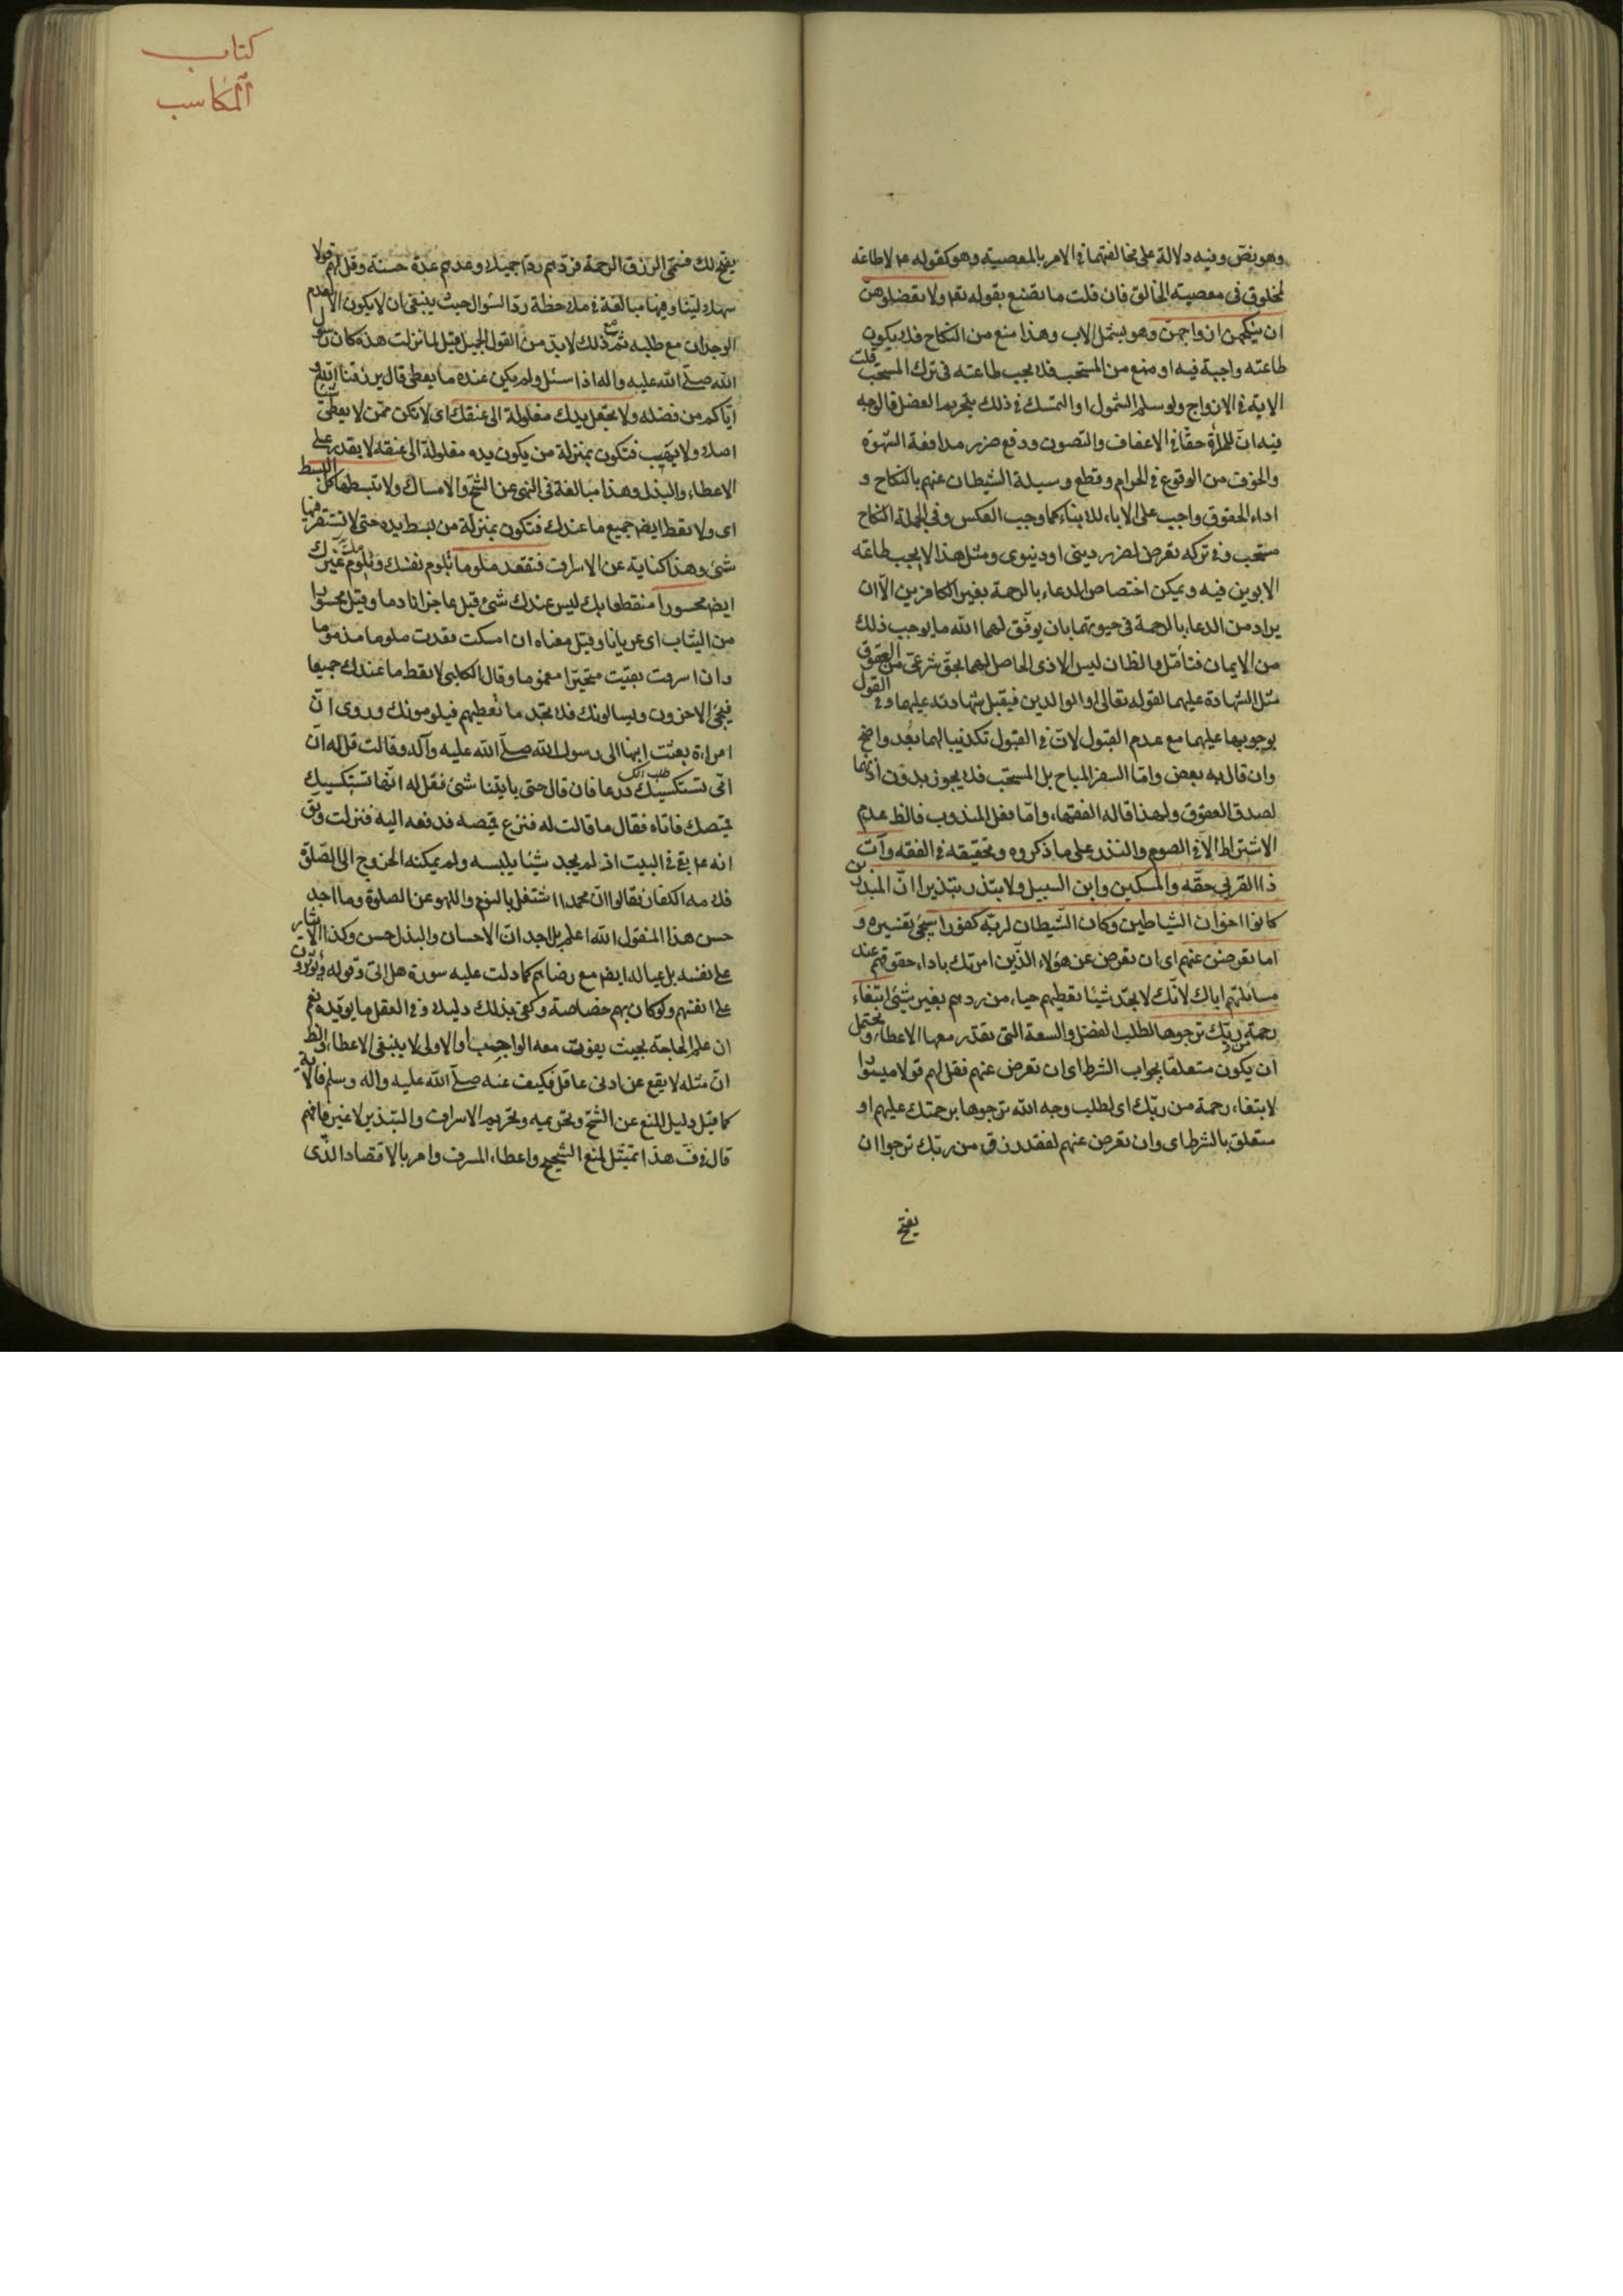 وهو نص وفيه دلالة على مخالفتهما فى الامر بالمعصية وهو كقوله ع لا طاعة
لمخلوق فى معصية الخالق فان قلت ما تصنع بقوله تعـ ولا تعضلوهن
ان ينكحن ازواجهن وهو يشمل الاب وهذا منع من النكاح فلا يكون
طاعته واجبة فيه او منع من المستحب فلا يجب طاعته فى ترك المستحب قلت
الاية فى الازواج ولو سلم الشمول او التمسك فى ذلك بتحريم العضل فالوجه
فيه ان للمرأة حقا فى الاعفاف والتصون ودفع ضرر مدافعة الشهوة
والخوف من الوقوع فى الحرام وقطع وسيلة الشيطان عنهم بالنكاح و
اداء الحقوق واجب على الاباء للابناء كما وجب العكس وفى الجملة النكاح
مستحب وفى تركه تعرض لضرر دينى او دنيوى ومثل هذا لا يجب طاعة
الابوين فيه ويمكن اختصاص الدعاء بالرحمة بغير الكافرين الا ان
يراد من الدعاء بالرحمة فى حيوتهما بان يوفق لهما الله ما يوجب ذلك
من الايمان فتأمل والظان ليس الاذى الحاصل لهما بحق شرعى من العقوق
مثل الشهادة عليهما لقوله تعالى او الوالدين فيقبل شهادته عليهما وفى القول
بوجوبها عليهما مع عدم القبول لان فى القبول تكذيبا لهما بعد واضح
وان قال به بعض واما السفر المباح بل المستحب فلا يجوز بدون اذنهما
لصدق العقوق ولهذا قاله الفقهاء واما فعل المندوب فالظ عدم
الاشتراط الا فى الصوم والنذر على ما ذكروه وتحقيقه فى الفقه وآت
ذا القربى حقه والمسكين وابن السبيل ولا تبذر تبذيرا ان المبذرين
كانوا اخوان الشياطين وكان الشيطان لربه كفورا سيجئ تفسيره و
اما تعرضن عنهم اى ان تعرض عن هؤلاء الذين امرتك باداء حقوقهم عند
مسائلتهم اياك لانك لا تجد شيئا تعطيهم حياء من ردهم بغير شئ ابتغاء
رحمة من ربك ترجوها لطلب الفضل والسعة التى تقدر معها الاعطاء ويحتمل
ان يكون متعلقا بجواب الشرط اى ان تعرض عنهم فقل لهم قولا ميسورا
لابتغاء رحمة من ربك اى لطلب وجه الله ترجوها برحمتك عليهم او
متعلق بالشرط اى وان تعرض عنهم لفقد رزق من ربك ترجوا ان
يفتح
كتاب
المكاسب
يفتح لك فسمى الرزق الرحمة فردهم ردا جميلا وعدهم عدة حسنة وقل لهم قولا
سهلا لينا وفيها مبالغة فى ملاحظة رد السؤال حيث ينبغى ان لا يكون الا لعدم
الوجدان مع طلبه ثم مع ذلك لابد من القول الجميل قيل لما نزلت هذه كان رسول
الله صلى الله عليه واله اذا سئل ولم يكن عنده ما يعطى قال يرزقنا الله و
اياكم من فضله ولا تجعل يدك مغلولة الى عنقك اى لا تكن ممن لا يعطى
اصلا ولا يهب فتكون بمنزلة من يكون يده مغلولة الى عنقه لا يقدر على
الاعطاء والبذل وهذا مبالغة فى النهى عن الشح والامساك ولا تبسطها كل البسط
اى ولا تعط ايض جميع ما عندك فتكون بمنزلة من بسط يده حتى لا تستقر فيها
شئ وهذا كناية عن الاسراف فتقعد ملوما تلوم نفسك وتلوم غيرك
ايض محسورا منقطعا بك ليس عندك شئ قيل عاجزا نادما وقيل محسورا
من الثياب اى عريانا وقيل معناه ان امسكت قعدت ملوما مذموما
وان اسرفت بقيت متحيرا مغموما وقال الكلبى لا تعط ما عندك جميعا
فيجئ الاخرون ويسالونك فلا تجد ما تعطيهم فيلومونك وروى ان
امراة بعثت ابنها الى رسول الله صلى الله عليه وآله وقالت قل له ان
امى تستكسيك درعا فان قال حتى ياتينا شئ فقل له انها تستكسيك
قميصك فاتاه فقال ما قالت له فنزع قميصه فدفعه اليه فنزلت وبقى
انه ع بقى فى البيت اذ لم يجد شيئا يلبسه ولم يمكنه الخروج الى الصلوة
فلامه الكفار فقالوا ان محمدا اشتغل بالنوم واللهو عن الصلوة وما اجد
حسن هذا المنقول الله اعلم بل اجد ان الاحسان والبذل حسن وكذا الايثار
على نفسه بل عياله ايض مع رضاهم كما دلت عليه سورة هل اتى وقوله ويؤثرون
على انفسهم ولو كان بهم خصاصة وكفى بذلك دليلا وفى العقل ما يؤيده نعم
ان علم الحاجة بحيث يفوت معه الواجب او الاولى لا ينبغى الاعطاء والظ
ان مثله لا يقع عن ادنى عاقل فكيف عنه صلى الله عليه واله وسلم فالاية
كما قيل دليل المنع عن الشح وتحريمه وتحريم الاسراف والتبذير لا غير فافهم
قال فى ف هذا تمثيل لمنع الشحيح واعطاء المسرف وامر بالاقتصاد الذى